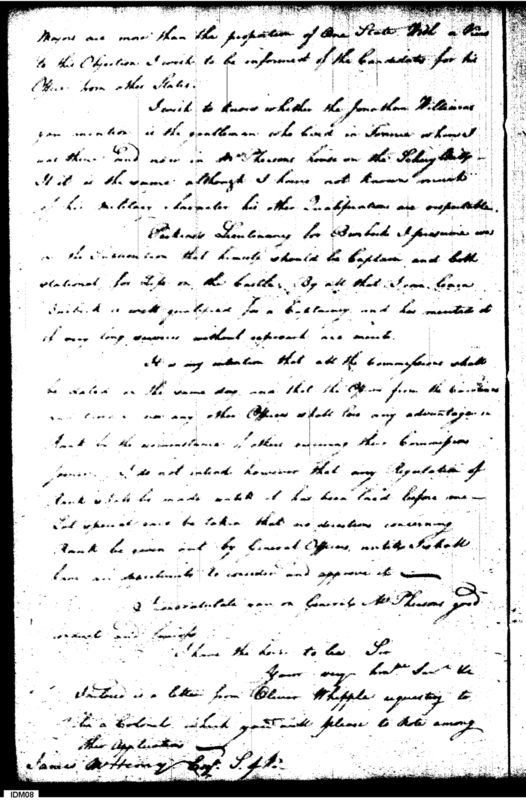 Majors are more than the proportion of One State. With a View
to this Objection I wish to be informed of the Candidates for this
Office from other States.
I wish to know whether the Jonathan Williams
you mention is the gentleman who lived in France when I
was there and now in Mr Phersons house on the Schuylkill –
If it is the same although I have not known much
of his military character his other Qualifications are respectable.
Lieutenancy for I presume was
on the that himself should be Captain and both
stationed for Life on the Castle. By all that I can learn
is well qualified for a Captaincy and has merited it
if very long services without reproach are merit.
It is my intention that all the Commissions shall
be dated on the same day and that the Officers from the
nor any other Officers shall have any advantage in
Rank by the circumstance of others receiving their Commissions
I do not intend however that any Regulation of
Rank shall be made until it has been laid before me –
Let special care be taken that no decisions concerning
Rank be given out by General Officers, untill I shall
have an opportunity to consider and approve it –
I congratulate you on General Mc Phersons good
conduct and
I have the honor to be Sir
Your very hum.ble Ser.t &c
Inclosed is a letter from Oliver Whipple requesting to
be a Colonel which you will please to note among
other applications
James McHenry Esq.r S. of W.
IDM08